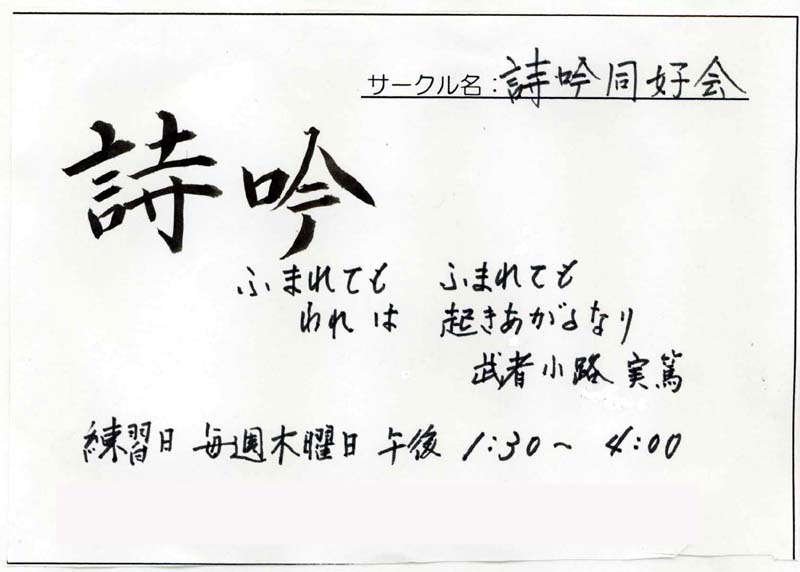 サークル名：詩吟同好会
詩吟
ふまれても　ふまれても
われは　起きあがるなり
武者小路実篤
練習日 毎週木曜日 午後 1:30～4:00